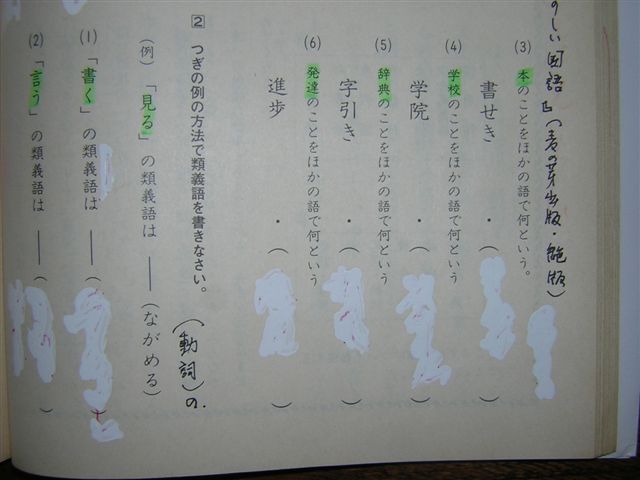 のしい国語』(麦の芽出版・絶版)
(3) 本のことをほかの語で何という。
書せき ・ ( )
(4) 学校のことをほかの語で何という
学院 ・ ( )
(5) 辞典のことをほかの語で何という
字引き ・ ( )
(6) 発達のことをほかの語で何という
進歩 ・ ( )
2 つぎの例の方法で類義語を書きなさい。(動詞)の.
(例) 「見る」の類義語は ── (ながめる)
(1) 「書く」の類義語は ── ( )
(2) 「言う」の類義語は ── ( )